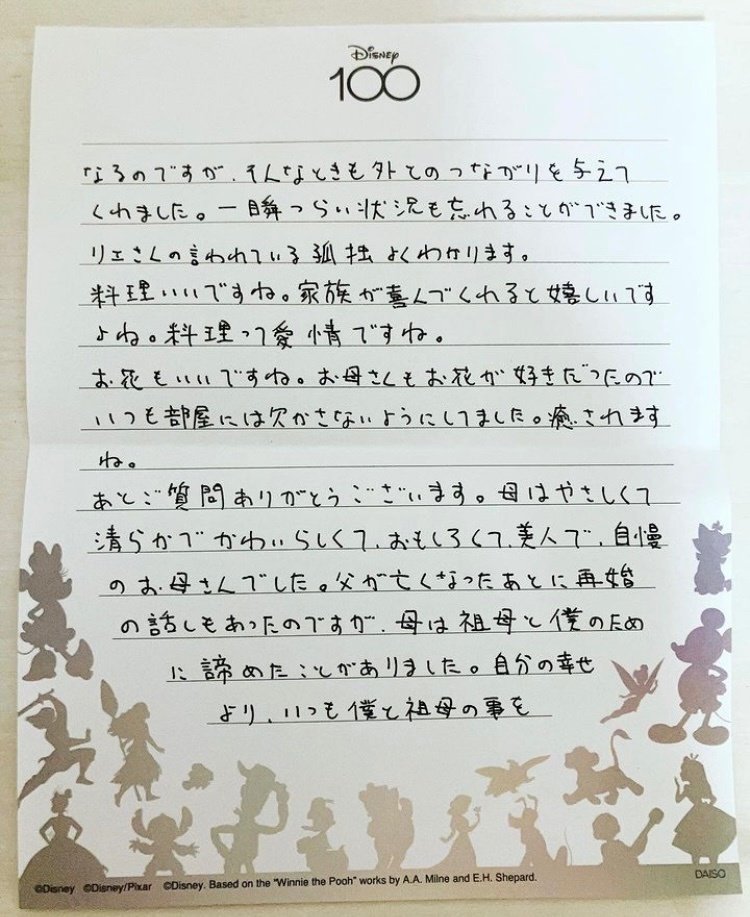 Disney
100
なるのですが、そんなときも外とのつながりを与えて
くれました。一瞬つらい状況も忘れることができました。
リエさんの言われている孤独よくわかります。
料理いいですね。家族が喜んでくれると嬉しいです
よね。料理って愛情ですね。
お花もいいですね。お母さんもお花が好きだったので
いつも部屋には欠かさないようにしてました。癒されます
ね。
あとご質問ありがとうございます。母はやさしくて
清らかでかわいらしくて、おもしろくて、美人で、自慢
のお母さんでした。父が亡くなったあとに再婚
の話しもあったのですが、母は祖母と僕のため
に諦めたことがありました。自分の幸せ
より、いつも僕と祖母の事を
©Disney ©Disney/Pixar ©Disney. Based on the "Winnie the Pooh" works by A.A. Milne and E.H. Shepard.
DAISO